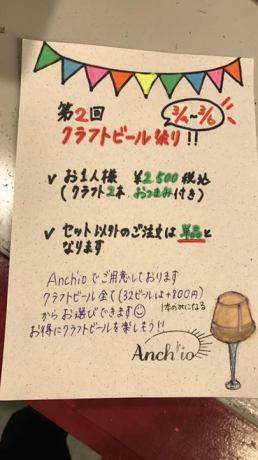 第2回
3/4~3/6
クラフトビール祭り!!
✓ お1人様 ¥2,500 税込
(クラフト2本 おつまみ付き)
✓ セット以外のご注文は単品と
なります
Anchioでご用意しております
クラフトビール全て(32ビールは+800円)
1本のみになる
からお選びできます☺
お得にクラフトビールを楽しもう!!
Anch'io